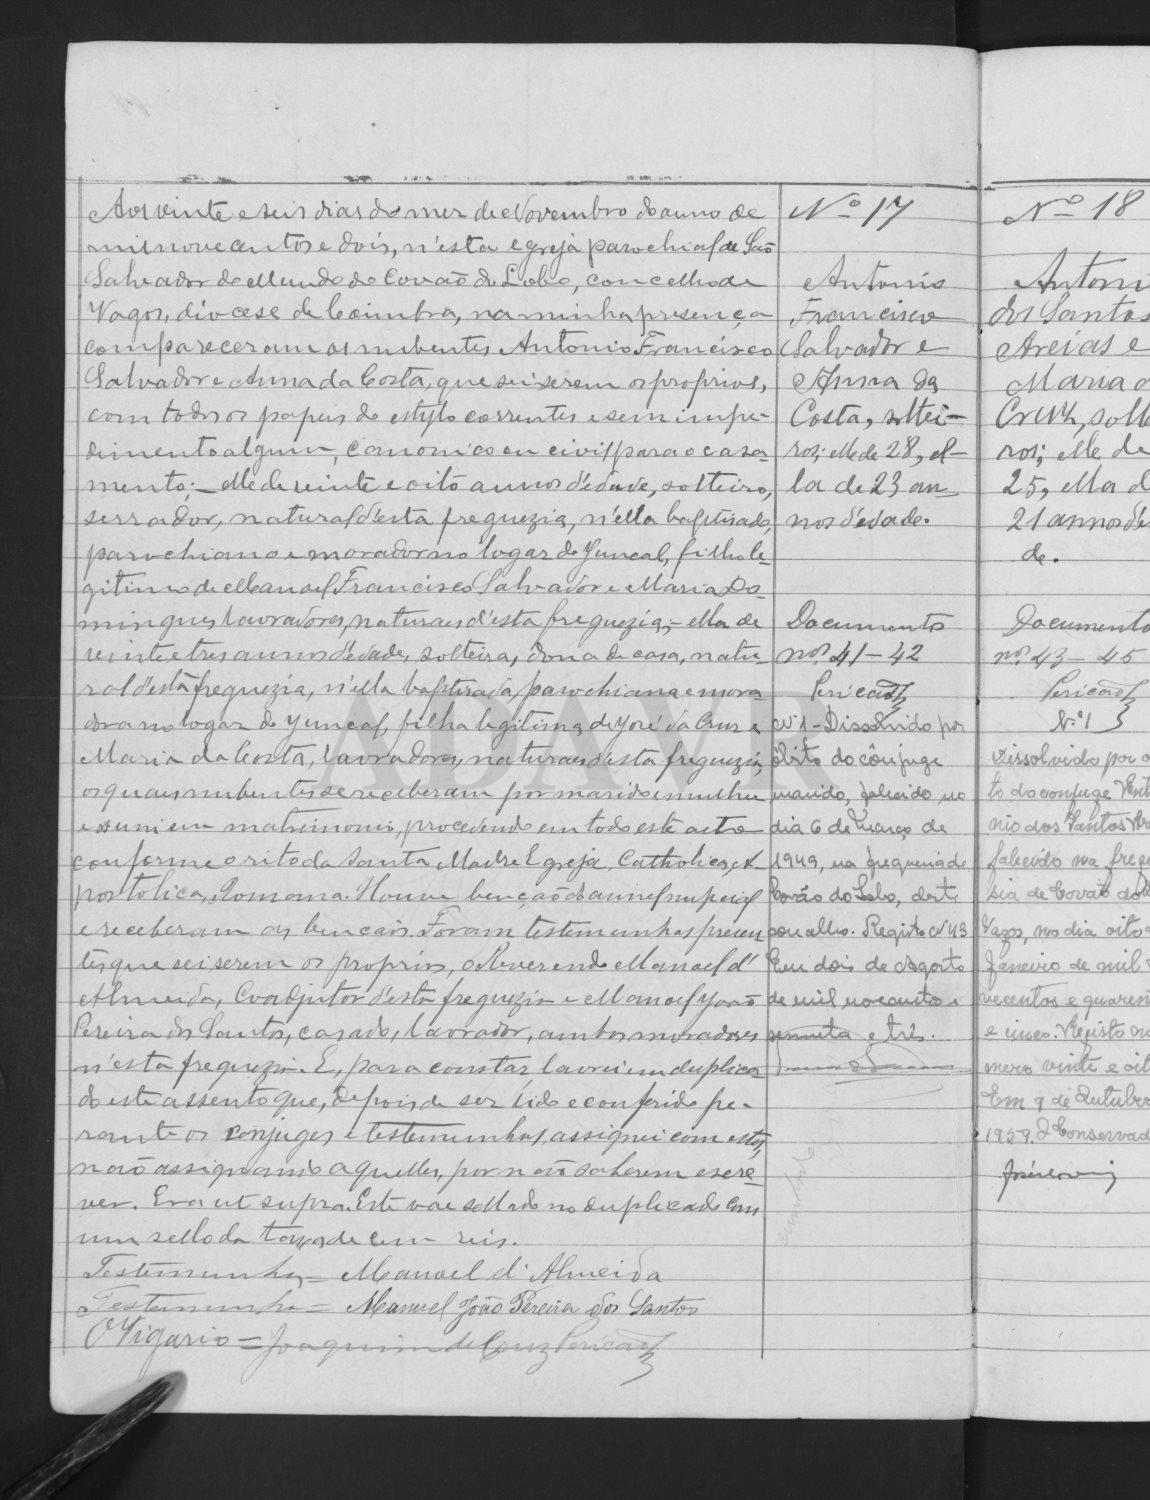 Aos vinte e seis dias do mez de Novembro do anno de
mil novecentos e dois, n'esta egreja parochial de São
Salvador do Mundo do Covão do Lobo, concelho de
Vagos, diocese de Coimbra, na minha presença
compareceram os nubentes Antonio Francisco
Salvador e Anna da Costa, que sei serem os proprios,
com todos os papeis do estylo correntes e sem impe-
dimento algum, canonico ou civil para o casa-
mento; – elle de vinte e oito annos d'edade, solteiro,
serrador, natural d'esta freguezia, n'ella baptisado,
parochiano e morador no logar do Juncal, filho le-
gitimo de Manoel Francisco Salvador e Maria Do-
mingues lavradores, naturaes d'esta freguezia; – ella de
vinte e tres annos d'edade, solteira, dona de casa, natu-
ral d'esta freguezia, n'ella baptisada, parochiana e mora-
dora no logar do Juncal, filha legitima de José da Cruz e
Maria da Costa, lavradores, naturaes d'esta freguezia,
os quaes nubentes se receberam por marido e mulher
e os uni em matrimonio, procedendo em todo este acto
conforme o rito da Santa Madre Egreja Catholica, A-
postolica, Romana. Houve benção do annel nupcial
e receberam as bençãos. Foram testemunhas presen-
tes que sei serem os proprios, o Reverendo Manoel d'
Almeida, Coadjutor d'esta freguezia e Manoel João
Pereira dos Santos, casado, lavrador, ambos moradores
n'esta freguezia. E, para constar lavrei em duplica-
do este assento que, depois de ser lido e conferido pe-
rante os conjuges e testemunhas, assignei com estas,
não assignando aquelles, por não saberem escre-
ver. Era ut supra. Este vae sellado no duplicado com
um sello da taxa de cem reis.
Testemunha = Manoel d'Almeida
Testemunha = Manuel João Pereira dos Santos
O Vigario = Joaquim da Cruz Pericão
Nº 17
Antonio
Francisco
Salvador e
Anna da
Costa, soltei-
ros; elle de 28, el-
la de 23 an-
nos d'edade.
Documentos
nos 41 – 42
Pericão
Nº 1 – Dissolvido por
óbito do cônjuge
marido, falecido no
dia 6 de Março de
1949, na freguesia de
Covão do Lobo, deste
concelho. Registo Nº 43
Em dois de Agosto
de mil novecentos e
sessenta e três.
Nº 18
Antoni
dos Santos
Areias e
Maria
Cruz, solt
ros; elle de
25, ella d
21 annos d'e
de.
Documento
nos 43 – 45
Pericão
Nº 1
Dissolvido por o
to do conjuge
nio dos Santos
falecido na freg
sia de Covão do
Vagos, no dia oito
Janeiro de mil
vecentos e quaren
e cinco. Registo nu
mero vinte e oit
Em 9 de Outubr
1959. O Conservad
ADAVR